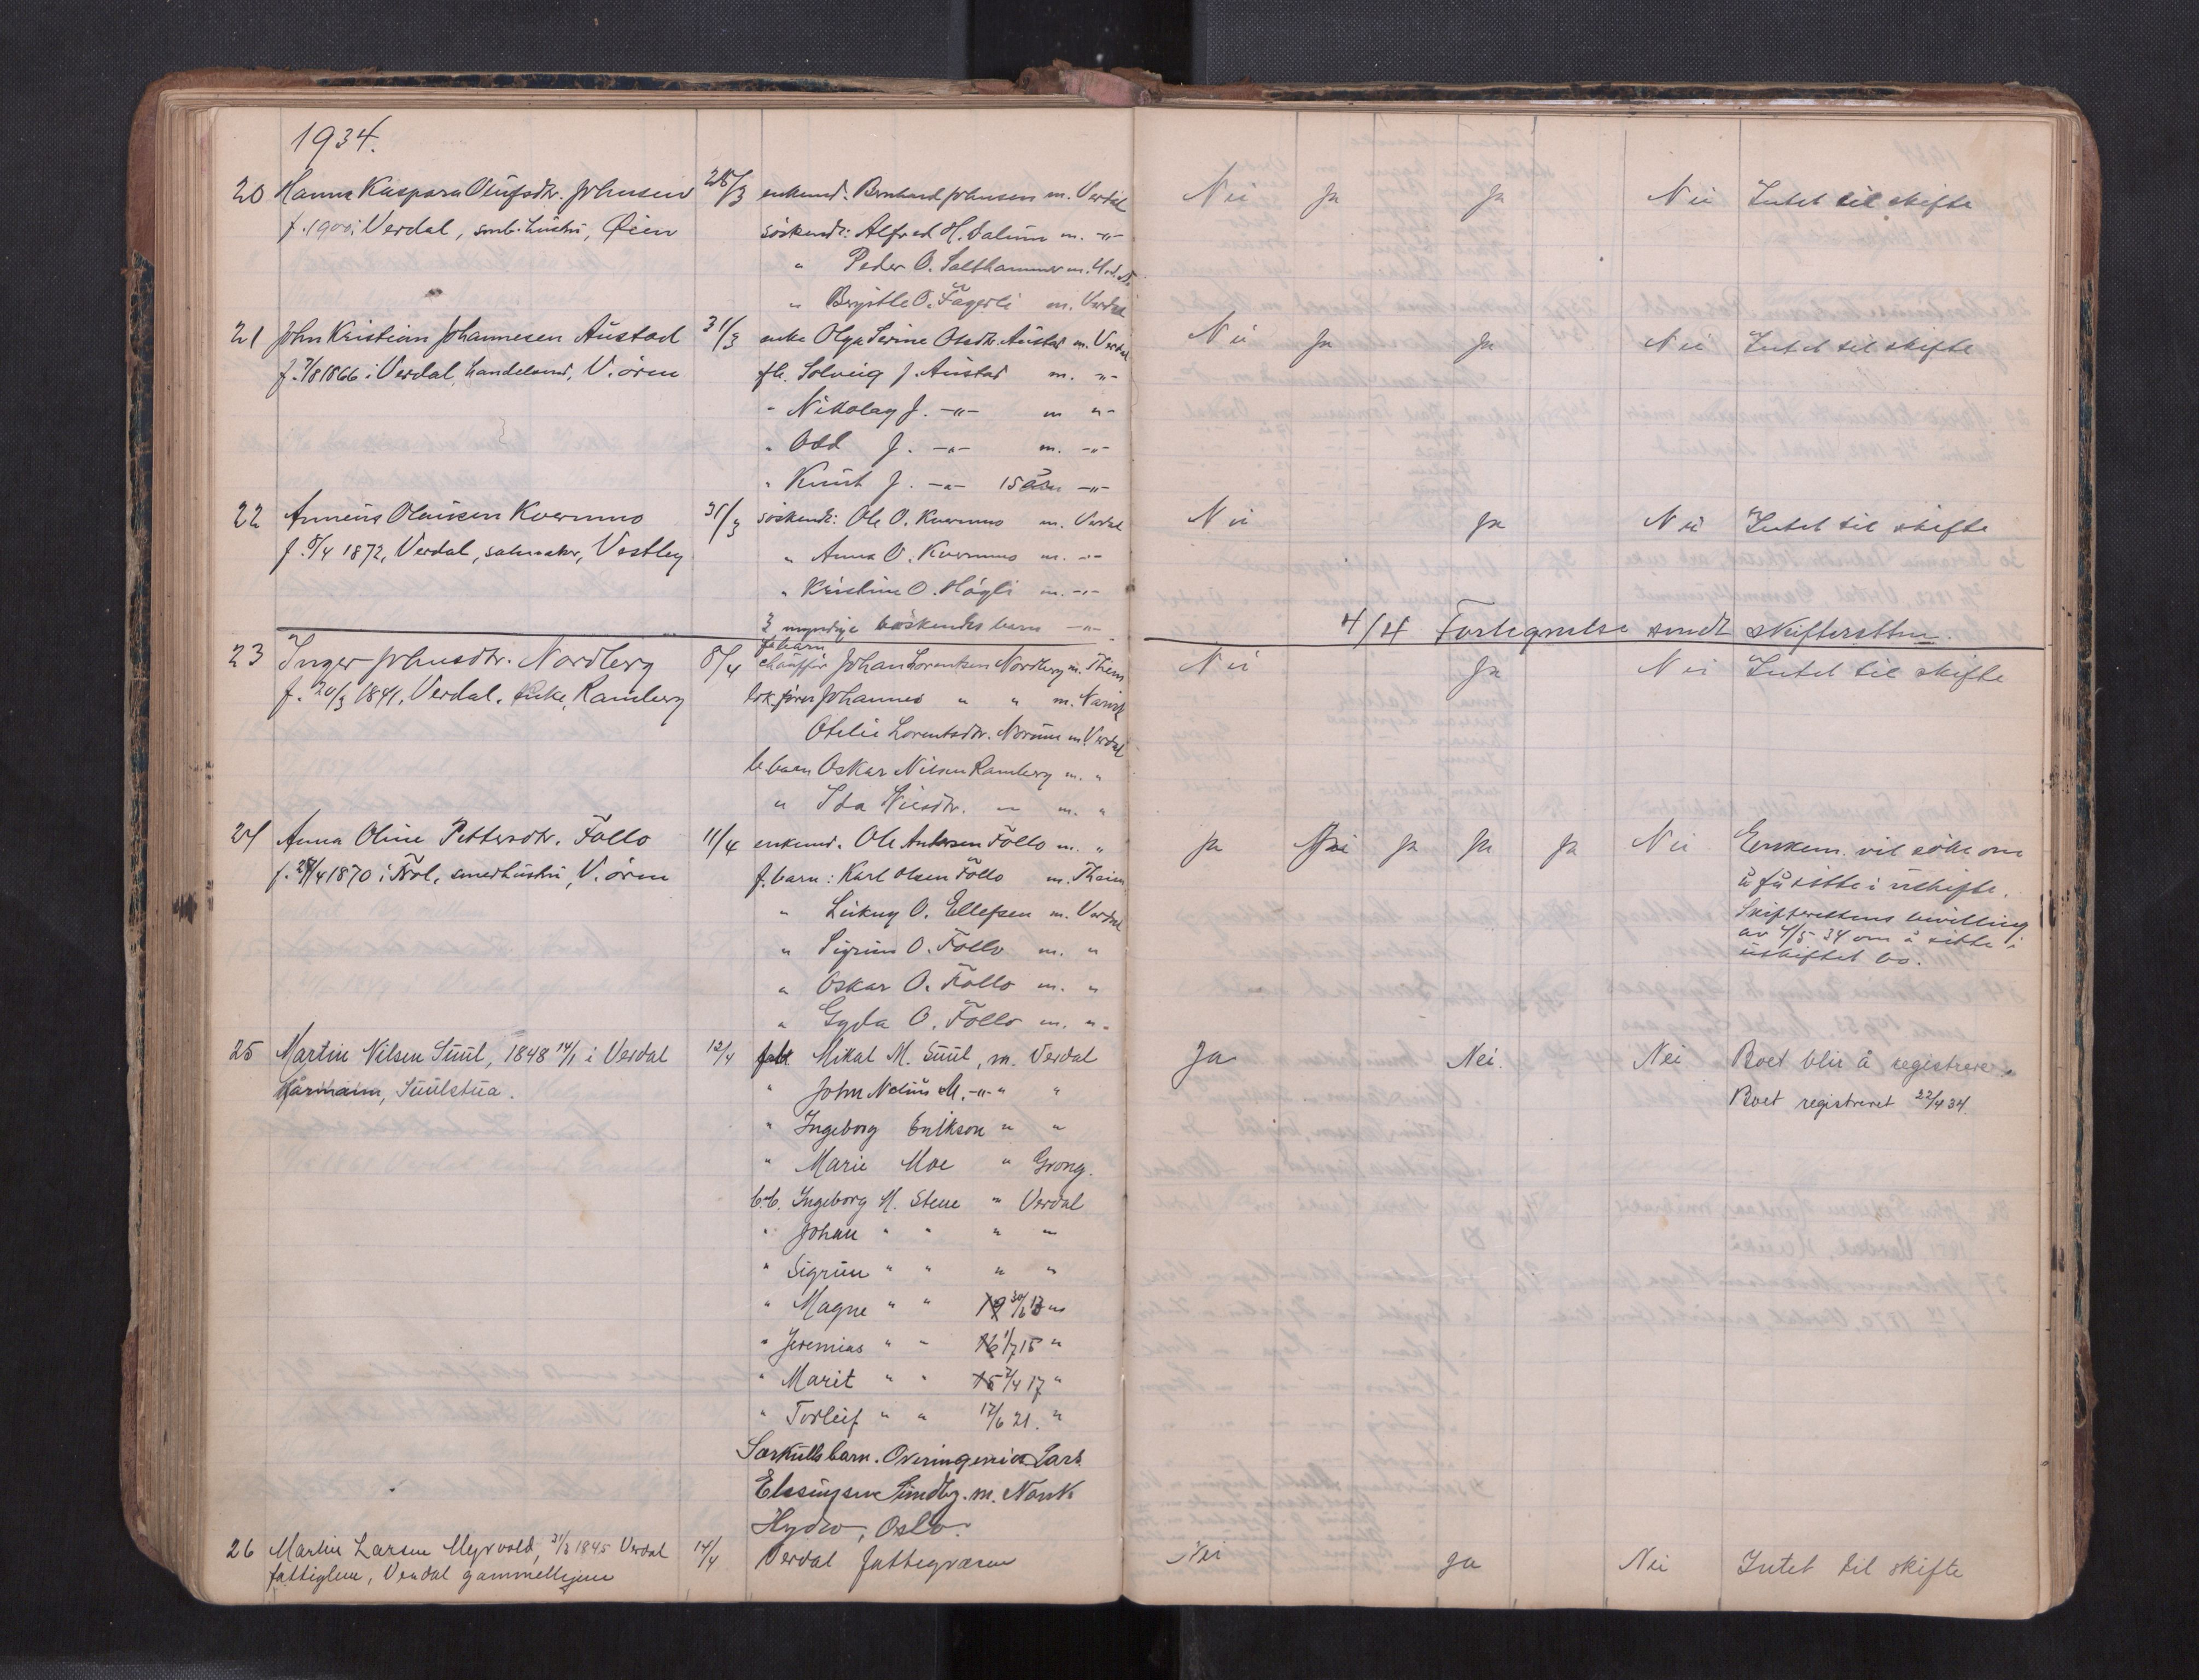 1934.
20 Hanna Kaspara Olufsdtr. Johnsen 28/3 enkemd. Bernhard Johnsen m. Verdal Nei Ja Ja Nei Intet til skifte
f. 1900 i Verdal, smb. hustru, Øien søskende: Alfred H. Dalum m. -"-
" Peder O. Salthammer m.
" O. Fagerli m. Verdal
21 John Kristian Johannesen Austad 31/3 enke Olga Serine Olsdtr. Austad m. Verdal Nei Ja Ja Nei Intet til skifte
f. 7/8 1866 i Verdal, handelsmd, V. øren fb. Solveig J. Austad m. -"-
" Nikolay J. -"- m "-
" Odd J. -"- m. -"-
" Knut J. -"- 15 år -"-
22 Anneus Olausen Kvernmo 31/3 søskende: Ole O. Kvernmo m. Verdal Nei Ja Nei Intet til skifte
f. 5/4 1872, Verdal, salmaker, Vestley " Anna O. Kvernmo m. -"-
" Kristine O. Høgli m. -"-
3 myndige søskendes barn -"- 4/4 Fortegnelse sendt skifteretten.
f. barn
23 Inger Johnsdtr. Nordberg 8/4 chauffør Johan Lorentsen Nordberg m. Thjem Nei Ja Nei Intet til skifte
f. 20/3 1841, Verdal, Enke, Ramberg lok.fører Johannes " " m. Narvik
Otelie Lorentsdtr. Norum m. Verdal
b.barn Oskar Nilsen Ramberg m. "
" Ida Nilsdtr. — m. "
24 Anna Oline Pettersdtr. Follo 11/4 enkemd. Ole Andersen Follo m. " Ja Ja Ja Ja Nei Enkem. vil søke om
f. 24/4 1870 i Frol, smedhustru, V. øren f. barn: Karl Olsen Follo m. Theim å få sitte i uskifte.
" O. Ellefsen m. Verdal Skifterettens bevilling
" Sigrun O. Follo m. " av 4/5 34 om å sitte i
" Oskar O. Follo m. " uskiftet bo.
" Gyda O. Follo m. "-
25 Martin Nilsen Suul, 1848 14/1 i Verdal 12/4 Mikal M. Suul, m. Verdal Ja Nei. Nei Boet blir å registrere.
Kårmann, Suulstua. " John Nelius M. -"- " " Boet registreret 22/4 34.
" Ingeborg Erikson " "
" Marie Moe " Grong.
b.b. Ingeborg M. Stene " Verdal
" Johan " " " "
" Sigrun " " " "
" Magne " " 19 30/6 13 "
" Jeremias " " 16 1/7 15 "
" Marit " " 15 2/4 17 "
" Torleif " " 12/6 21. "
Særkullsbarn. Overingeniør Lars
Elesingsen Sundby. m. Norsk
Hydro, Oslo.
26 Martin Larsen Myrvold, 31/3 1845 Verdal 14/4 Verdal fattigvæsen Nei Ja Nei Intet til skifte
fattiglem, Verdal gammelhjem